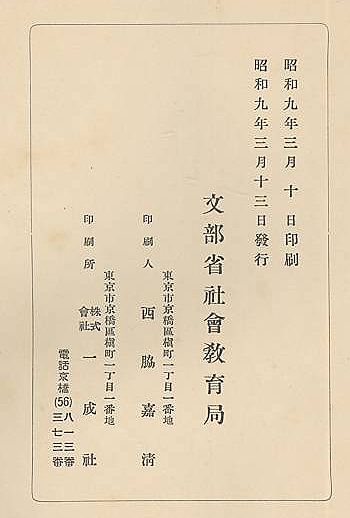 昭和九年三月十日印刷
昭和九年三月十三日發行
文部省社會敎育局
東京市京橋區槇町一丁目一番地
印刷人 西脇嘉淸
東京市京橋區槇町一丁目一番地
印刷所 株式會社 一成社
電話京橋(56)八一三番
三七三番